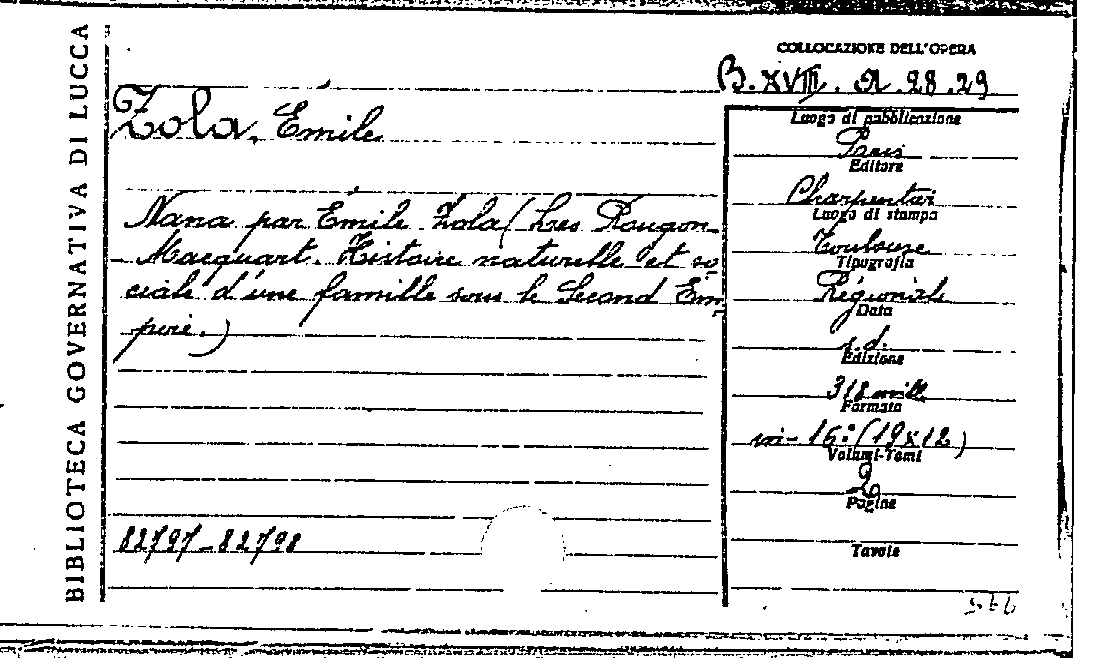 BIBLIOTECA GOVERNATIVA DI LUCCA
COLLOCAZIONE DELL'OPERA
B. XVIII. A. 28.29
Zola, Émile
Nana par Émile Zola (Les Rougon-
Macquart. Histoire naturelle et so
ciale d'une famille sous le Second Em
pire.)
82797-82798
Luogo di pubblicazione
Paris
Editore
Charpentier
Luogo di stampa
Toulouse
Tipografia
Régionale
Data
s.d.
Edizione
318 mill
Formato
in-16° (19x12)
Volumi-Tomi
2
Pagine
Tavole